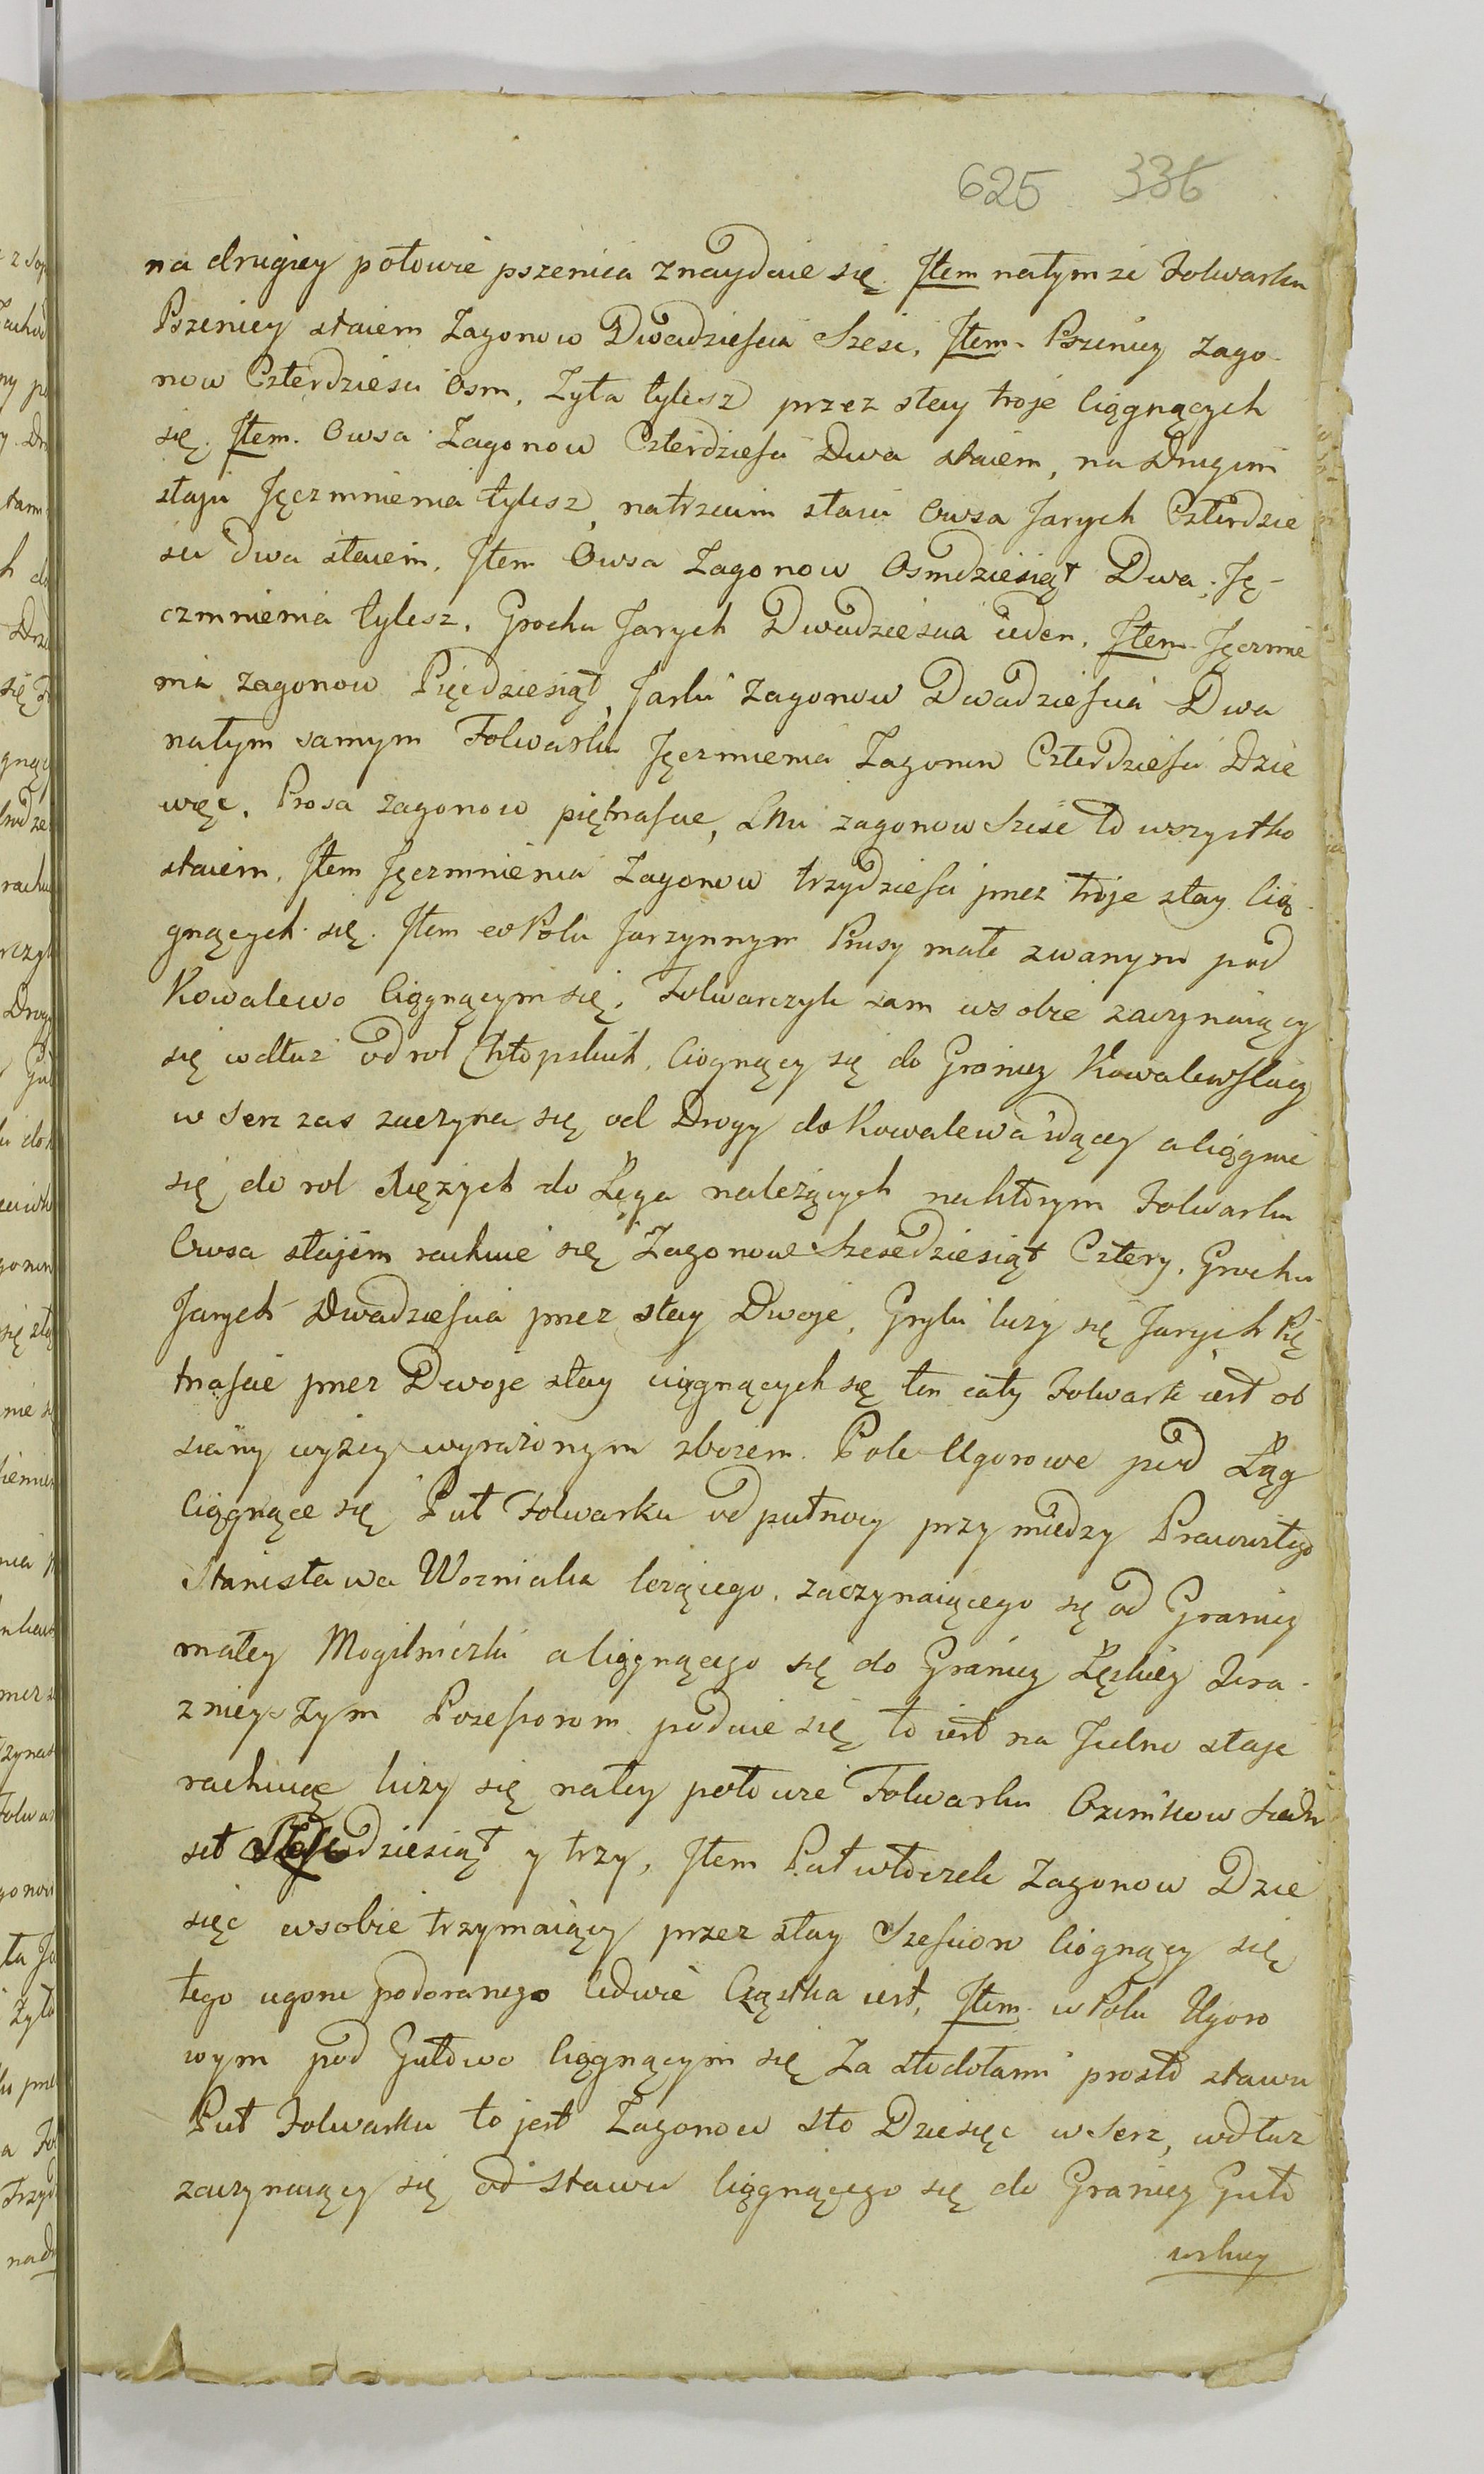 625 336
na drugiey połowie pszenica znayduie się. Jtem natymże Folwarku
Pszenicy staiem Zagonow Dwadzieścia Szesc, Jtem. Pszenicy Zago-
now Czterdziesci Osm, Zyta tylesz przez stay troje ciągnących
się. Jtem. Owsa Zagonow Czterdzieści Dwa staiem, na Drugim
staju Jęczmnienia tylesz, natrzecim staiu Owsa Jarych Czterdzie
sci dwa staiem. Jtem Owsa Zagonow Osmdziesiąt Dwa, Ję-
czmnienia tylesz. Grochu Jarych Dwadziescia ieden. Jtem. Jęczmie
nia zagonow Pięcdziesiąt, Jarki Zagonow Dwadzieścia Dwa
natym samym Folwarku Jęczmienia Zagonow Czterdzieści Dzie
więc. Prosa zagonow piętnaście, Lnu zagonow Szesc to wszystko
staiem. Jtem Jęczmnienia Zagonow trzydzieści przez troje stay cią-
gnących się. Jtem w Polu Jarzynnym Prusy małe zwanym pod
Kowalewo ciągnącym się, Folwarczyk sam wsobie zaczynaiący
się wdłuż od rol Chłopskich, ciognący się do Granicy Kowalewskiey
w Serz zas zaczyna się od Drogy do Kowalewa idącey a ciągnie
się do rol Xiężych do Łęga należących naktorym Folwarku
Owsa stajem rachuie się Zagonow Szescdziesiąt Cztery. Grochu
Jarych Dwadzieścia przez stay Dwoje, Gryki liczy się Jarych Pię
tnaście przez Dwoje stay ciągnących się ten cały Folwark iest ob
siany wyżey wyrażonym zbożem. Pole Ugorowe pod Łąg
ciągnące się Puł Folwarku od pułnocy przy miedzy Pracowitego
Stanisława Wozniaka leżącego, zaczynaiącego się od Granicy
małey Mogilniczki a ciągnącego się do Granicy Łęskiey tera-
znieyszym Possessorom podaie się to iest na Jedno staje
rachuiąc liczy się natey połowie Folwarku Ozimkow Siedm
set dziesiąt y trzy, Jtem Puł włoczek Zagonow Dzie
sięc wsobie trzymaiący przez stay Sześcioro ciognący się
tego ugoru podoranego ledwie Cząstka iest, Jtem w Polu Ugoro
wym pod Gułtowo ciągnącym się Za stodołami prosto stawu
Puł Folwarku to jest Zagonow sto Dziesięc w Serz, wdłuz
zaczynaiący się od Stawu ciągnącego się do Granicy Gułto
wskiey